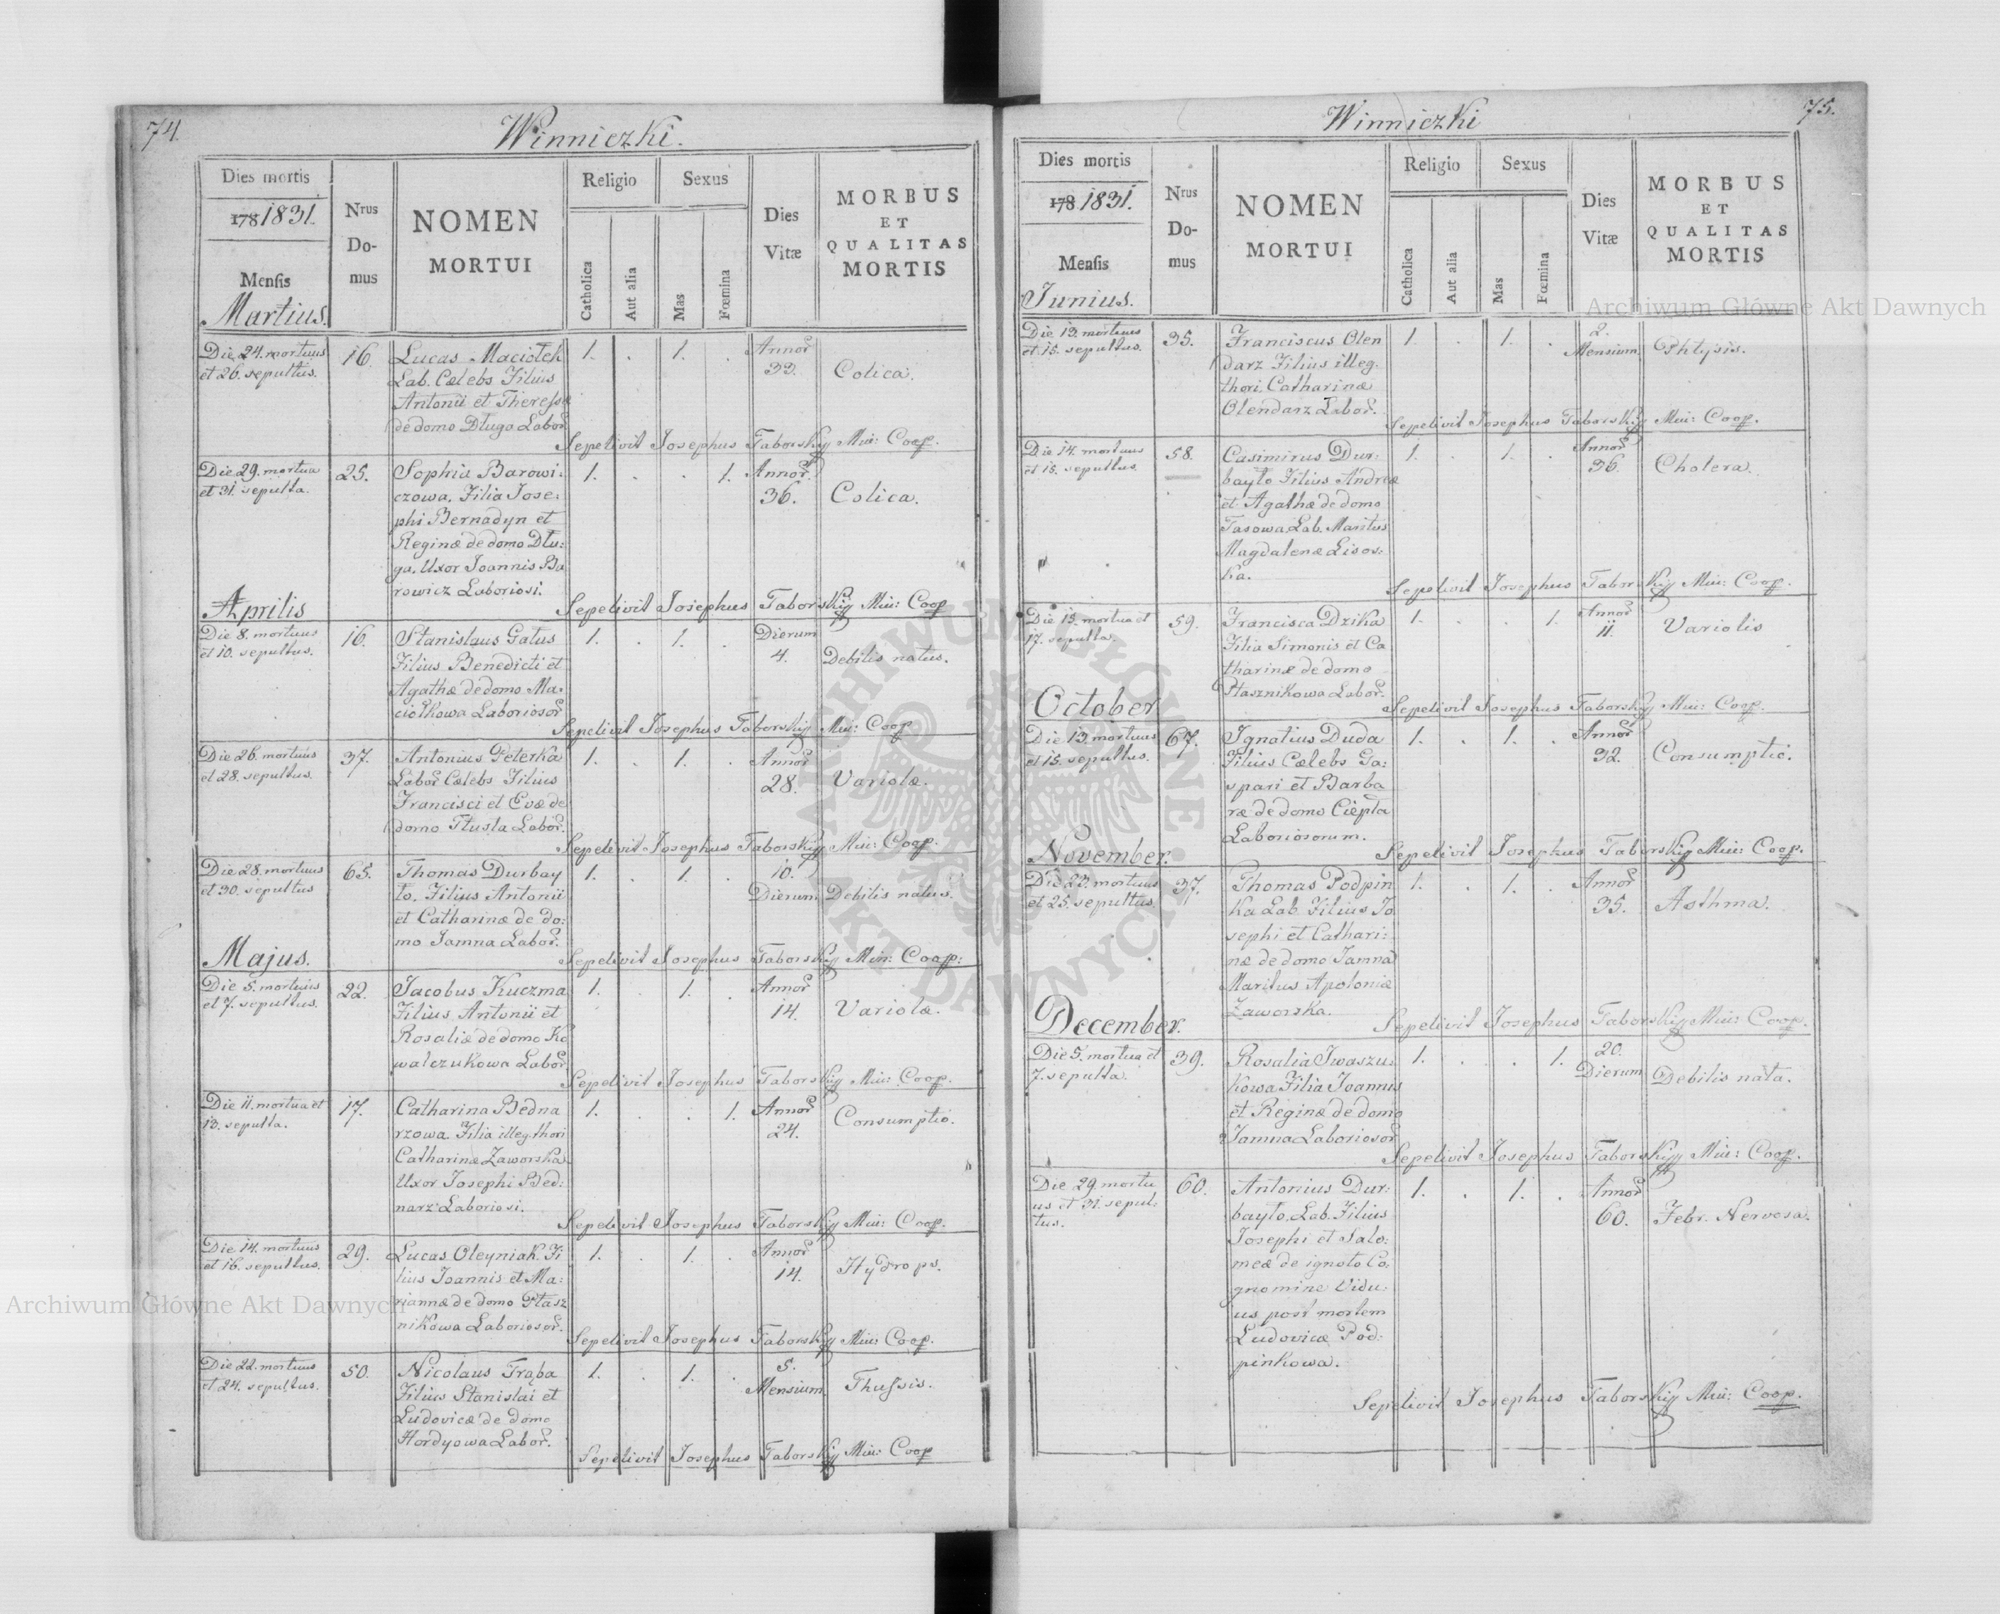 74.
Winniczki.
Dies mortis
1781831.
Mensis
Martius.
Nrus
Do-
mus
NOMEN
MORTUI
Religio
Catholica
Aut alia
Sexus
Mas
Fœmina
Dies
Vitæ
MORBUS
ET
QUALITAS
MORTIS
Die 24. mortuus
et 26. sepultus.
16.
Lucas Maciołek
Lab. Cælebs Filius
Antonii et Theressæ
de domo Długa Labor.
1. . 1. .
Annor
33.
Colica.
Sepelivit Josephus Taborskij Mui: Coop.
Die 29. mortua
et 31. sepulta.
25.
Sophia Barowi:
czowa, Filia Jose:
phi Bernadyn et
Reginæ de domo Dłu:
ga, Uxor Joannis Ba
rowicz Laboriosi.
1. . . 1.
Annor
36.
Colica.
Sepelivit Josephus Taborskij Mui: Coop
Aprilis
Die 8. mortuus
et 10. sepultus.
16.
Stanislaus Gatus
Filius Benedicti et
Agathæ de domo Ma:
ciołkowa Laboriosor
1. . 1. .
Dierum
4.
Debilis natus.
Sepelivit Josephus Taborskij Mui: Coop
Die 26. mortuus
et 28. sepultus.
37.
Antonius Peterka
Labor Cælebs Filius
Francisci et Evæ de
domo Tłusta Labor.
1. . 1. .
Annor
28.
Variolæ.
Sepelivit Josephus Taborskij Mui: Coop.
Die 28. mortuus
et 30. sepultus
65.
Thomas Durbay
ło, Filius Antonii
et Catharinæ de do:
mo Jamna Labor.
1. . 1. .
10.
Dierum
Debilis natus.
Sepelivit Josephus Taborskij Mui: Coop:
Majus.
Die 5. mortuus
et 7. sepultus.
22.
Jacobus Kuczma
Filius Antonii et
Rosaliæ de domo Ko
walczukowa Labor
1. . 1. .
Annor
14.
Variolæ.
Sepelivit Josephus Taborskij Mui: Coop.
Die 11. mortua et
13. sepulta.
17.
Catharina Bedna
rzowa Filia illeg. thori
Catharinæ Zaworska
Uxor Josephi Bed:
narz Laboriosi.
1. . . 1.
Annor
24.
Consumptio.
Sepelivit Josephus Taborskij Mui: Coop.
Die 14. mortuus
et 16. sepultus.
29.
Lucas Oleyniak Fi
lius Joannis et Ma:
riannæ de domo Ptasz
nikowa Laboriosor.
1. . 1. .
Annor
14.
Hydrops.
Sepelivit Josephus Taborskij Mui: Coop.
Die 22. mortuus
et 24. sepultus.
50.
Nicolaus Trąba
Filius Stanislai et
Ludovicæ de domo
Hordyowa Labor.
1. . 1. .
5.
Mensium
Thussis.
Sepelivit Josephus Taborskij Mui: Coop
75.
Winniczki
Dies mortis
1781831.
Mensis
Junius.
Nrus
Do-
mus
NOMEN
MORTUI
Religio
Catholica
Aut alia
Sexus
Mas
Fœmina
Dies
Vitæ
MORBUS
ET
QUALITAS
MORTIS
Die 13. mortuus
et 15. sepultus.
35.
Franciscus Olen
darz Filius illeg.
thori Catharinæ
Olendarz Labor.
1. . 1. .
2.
Mensium
Phtysis.
Sepelivit Josephus Taborskij Mui: Coop.
Die 14. mortuus
et 15. sepultus.
58.
Casimirus Dur:
bayło Filius Andreæ
et Agathæ de domo
Tasowa Lab. Maritus
Magdalenæ Lisos:
ka.
1. . 1. .
Annor
36.
Cholera.
Sepelivit Josephus Taborskij Mui: Coop.
Die 15. mortua et
17. sepulta.
59.
Francisca Dzika
Filia Simonis et Ca
tharinæ de domo
Ptasznikowa Labor.
1. . . 1.
Annor
11.
Variolis
Sepelivit Josephus Taborskij Mui: Coop.
October
Die 13. mortuus
et 15. sepultus.
67.
Ignatius Duda
Filius Cælebs Ga:
spari et Barba
ræ de domo Ciepła
Laboriosorum.
1. . 1. .
Annor
32.
Consumptio.
Sepelivit Josephus Taborskij Mui: Coop.
November.
Die 23. mortuus
et 25. sepultus.
37.
Thomas Podpin
ka Lab. Filius Jo
sephi et Cathari:
næ de domo Jamna
Maritus Apoloniæ
Zaworska.
1. . 1. .
Annor
35.
Asthma.
Sepelivit Josephus Taborskij Mui: Coop.
December.
Die 5. mortua et
7. sepulta.
39.
Rosalia Iwaszu:
kowa Filia Joannis
et Reginæ de domo
Jamna Laboriosor
1. . . 1.
20.
Dierum
Debilis nata.
Sepelivit Josephus Taborskij Mui: Coop.
Die 29. mortu
us et 31. sepul:
tus.
60.
Antonius Dur:
bayło, Lab. Filius
Josephi et Salo:
meæ de ignoto Co,
gnomine Vidu:
us post mortem
Ludovicæ Pod:
pinkowa.
1. . 1. .
Annor
60.
Febr. Nervosa.
Sepelivit Josephus Taborskij Mui: Coop.
Archiwum Główne Akt Dawnych
Archiwum Główne Akt Dawnych
ARCHIWUM GŁÓWNE AKT DAWNYCH